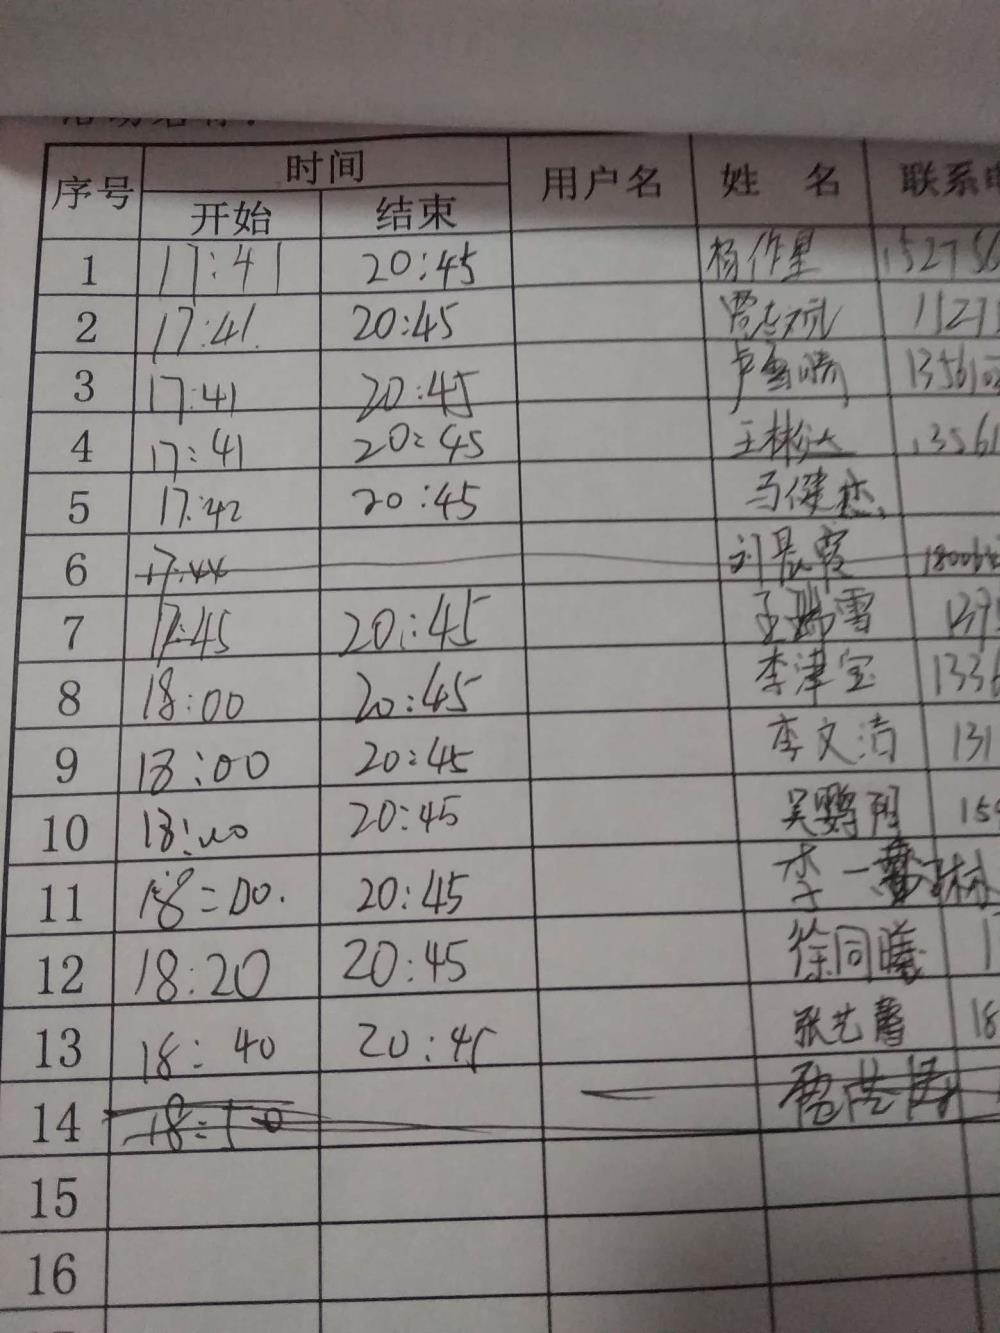 时间
序号 开始 结束 用户名 姓 名 联系
1 17:41 20:45 杨作星 152756
2 17:41 20:45
3 17:41 20:45 卢雪晴 13561
4 17:41 20:45 王彬 13561
5 17:42 20:45 马健
6 17:44 刘晨霞 18006
7 17:45 20:45 王瑞雪
8 18:00 20:45 李津宝 133
9 18:00 20:45 李文洁 131
10 18:00 20:45 吴鹦 15
11 18:00. 20:45 李一
12 18:20 20:45 徐同曦 1
13 18:40 20:45 张艺馨 18
14 18:50
15
16